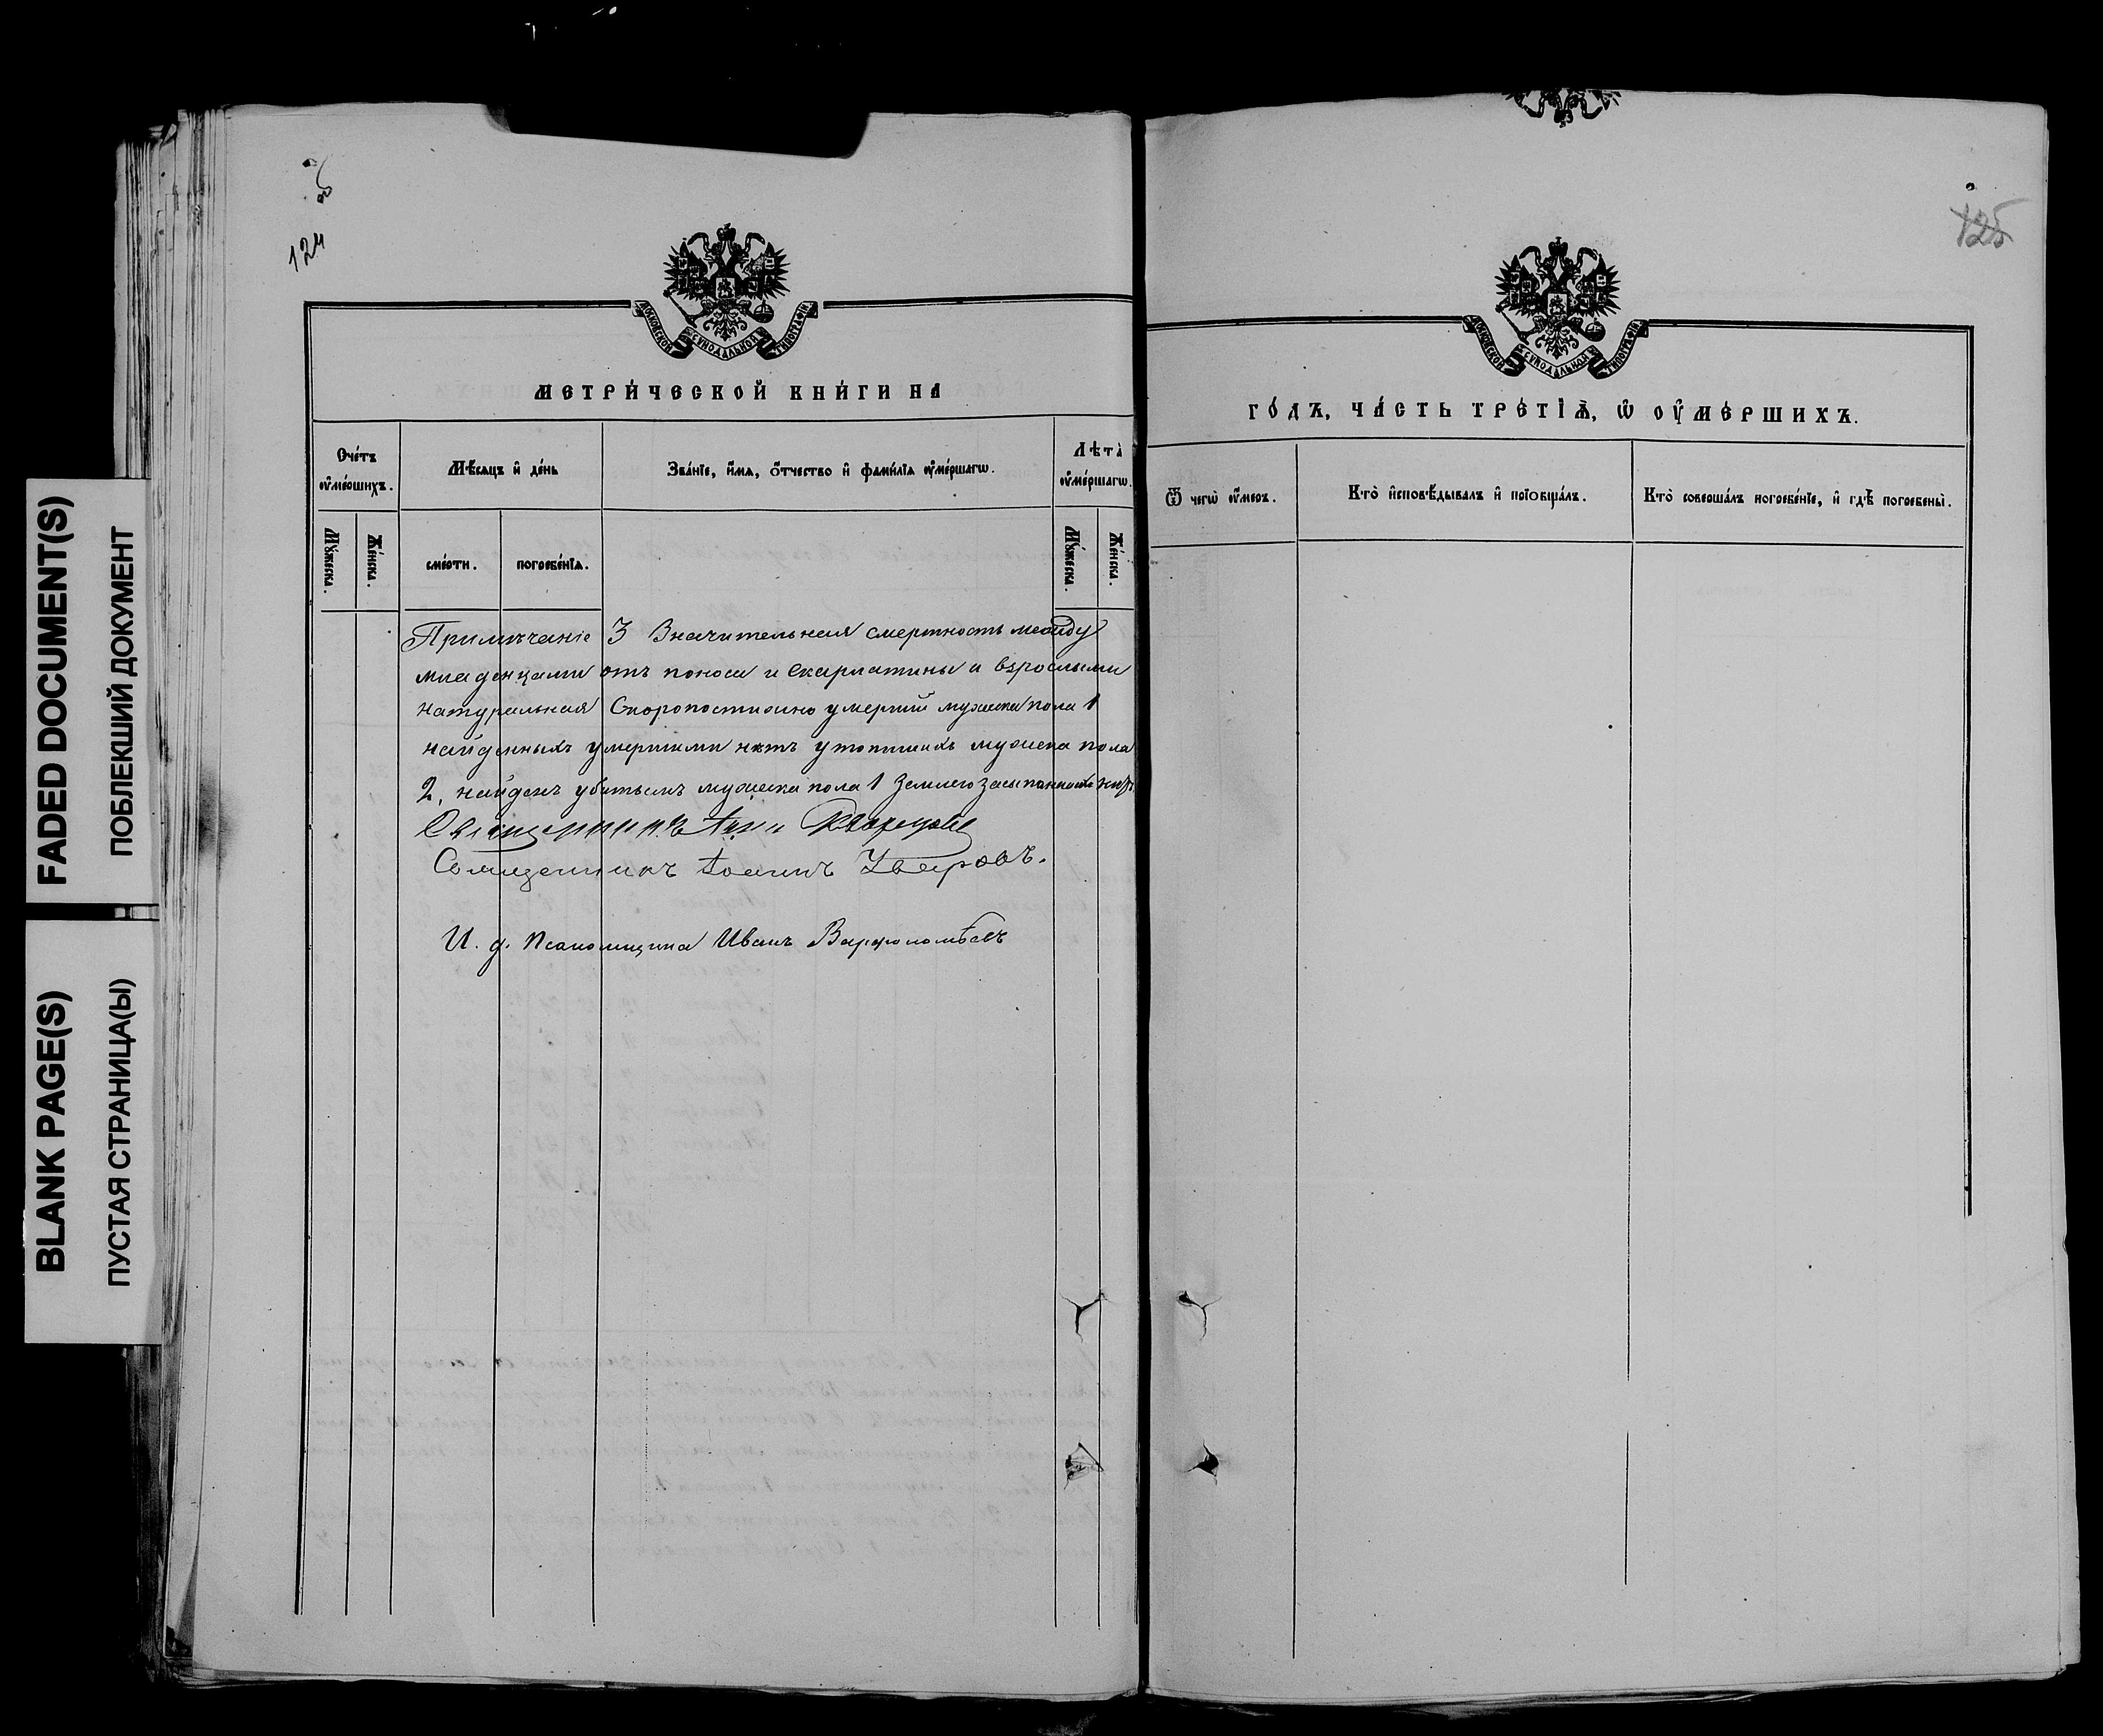 FADED DOCUMENT(S)
ПОБЛЕКШИЙ ДОКУМЕНТ
BLANK PAGE(S)
ПУСТАЯ СТРАНИЦА(Ы)
124
МОСКОВСКОЙ СѴНОДАЛЬНОЙ ТИПОГРАФІИ
МЕТРИ́ЧЕСКОЙ КНИ́ГИ НА
Сче́тъ ᲂу҆ме́ршихъ.
Мѣ́сяцъ и҆ де́нь
Зва́нїе, и҆́мя, ѻ҆́тчество и҆ фами́лїя ᲂу҆ме́ршагѡ.
Лѣта̀ ᲂу҆ме́ршагѡ.
Мꙋ́жеска.
Же́нска.
сме́рти.
погребе́нїѧ.
Мꙋ́жеска.
Же́нска.
Примѣчаніе 3 Значительная смертность между
младенцами отъ поноса и скарлатины а взрослыми
натуральная Скоропостижно умерший мужеска пола 1
найденныхъ умершими нѣтъ утопшихъ мужеска пола
2, найденъ убитымъ мужеска пола 1 Землею
Священникъ
Священникъ Іоаннъ Уваровъ.
И. д. Псаломщика Иванъ Варфоломѣевъ
125
МОСКОВСКОЙ СѴНОДАЛЬНОЙ ТИПОГРАФІИ
ГО́ДЪ, ЧА́СТЬ ТРЕ́ТЇѦ, Ѡ҆ ОУ҆МЕ́РШИХЪ.
Ѿ чегѡ̀ ᲂу҆́меръ.
Кто̀ и҆сповѣ́дывалъ и҆ прїобща́лъ.
Кто̀ соверша́лъ погребе́нїе, и҆ гдѣ̀ погребены̀.